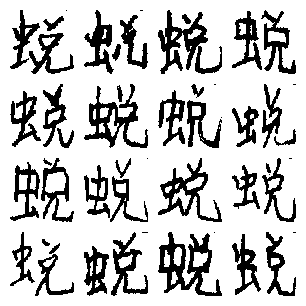 蜕蜕蜕蜕
蜕蜕蜕蜕
蜕蜕蜕蜕
蜕蜕蜕蜕